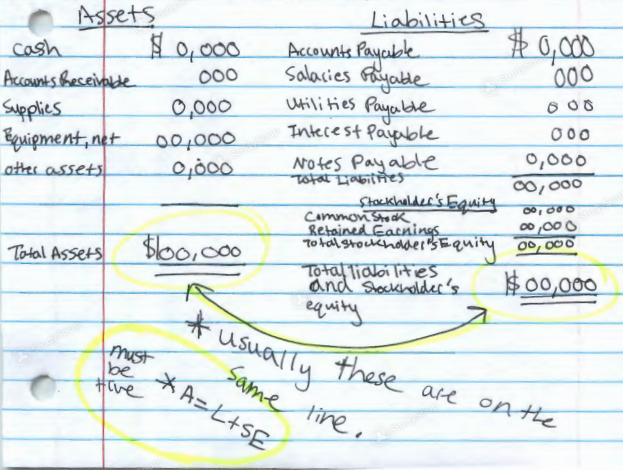 Assets
Cash $ 0,000
Accounts Receivable 000
Supplies 0,000
Equipment, net 00,000
other assets 0,000
Total Assets $100,000
Liabilities
Accounts Payable $ 0,000
Salaries Payable 000
Utilities Payable 000
Interest Payable 000
Notes Payable 0,000
Total Liabilities 00,000
Stockholder's Equity
Common Stock 00,000
Retained Earnings 00,000
Total Stockholder's Equity 00,000
Total liabilities
and Stockholder's $ 00,000
equity
* usually these are on the
same line.
must
be
true
* A=L+SE